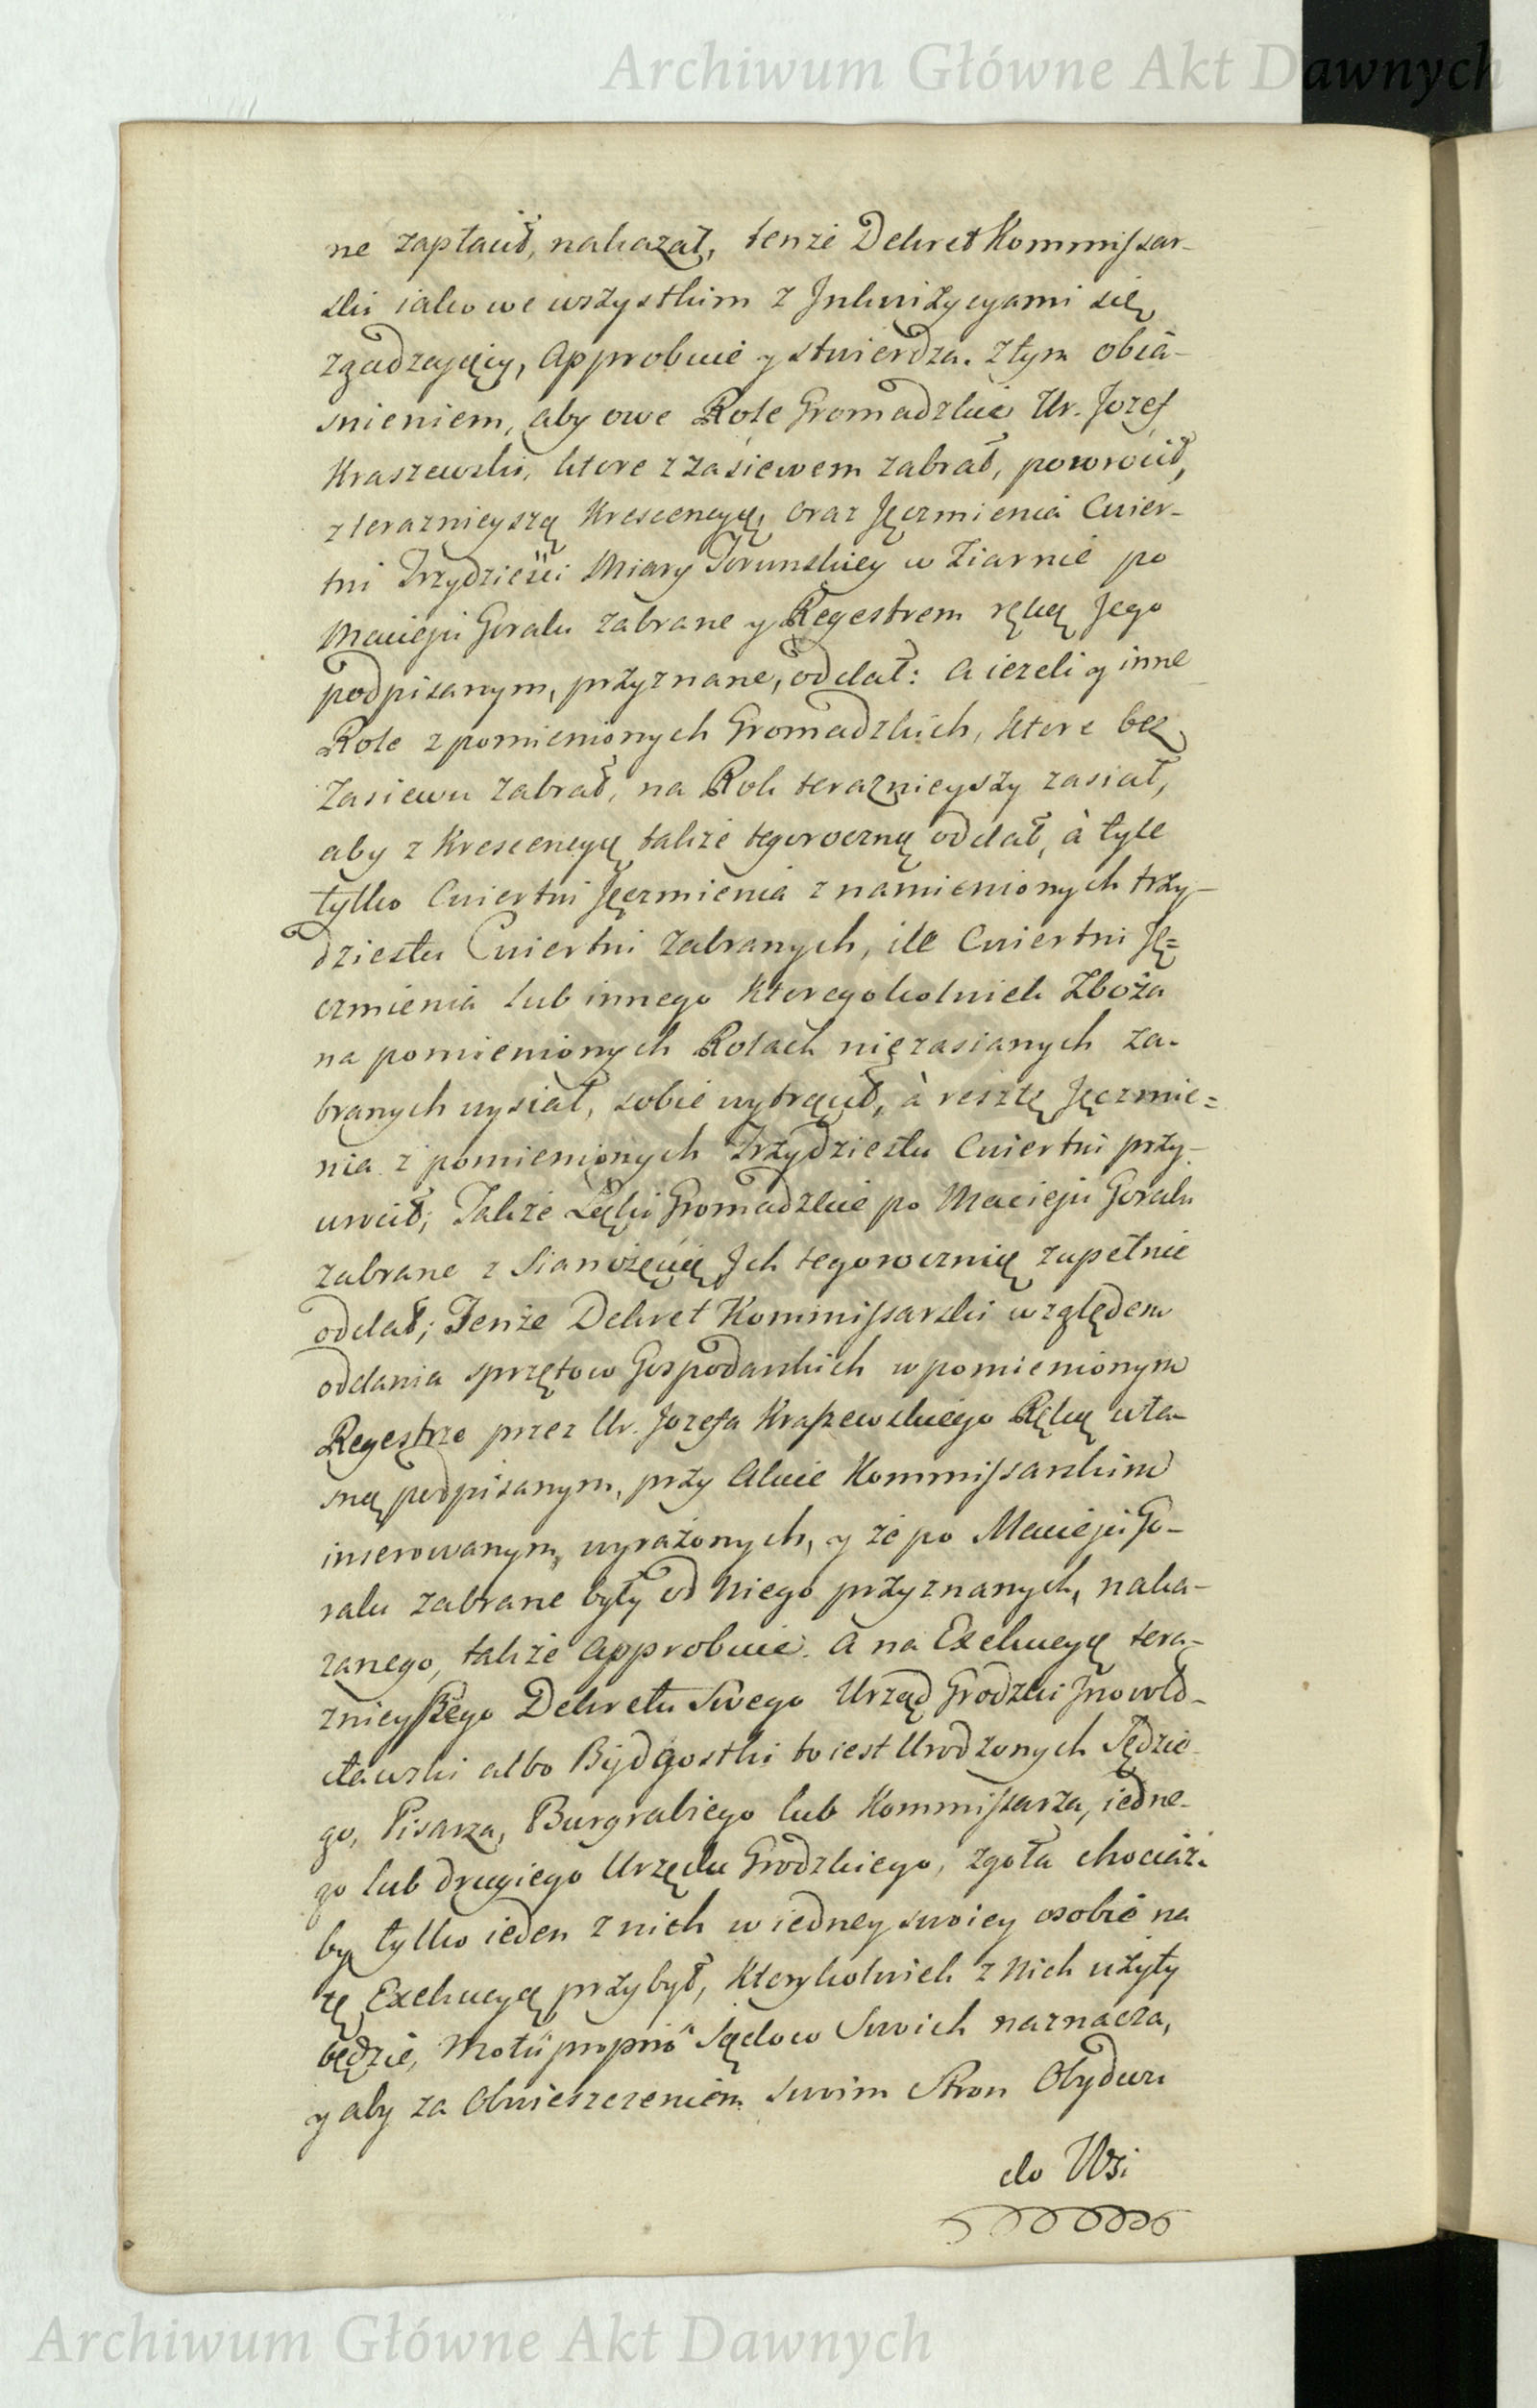 Archiwum Główne Akt Dawnych
ne zapłacił, nakazał, tenże Dekret Kommissar-
ski iako we wszystkim z Inkwizycyami się
zgadzaiący, Approbuie y stwierdza. Z tym obia-
snieniem, aby owe Role Gromadzkie Ur. Jozef
Kraszewski, ktore z zasiewem zabrał, powrocił,
z teraznieyszą Krescencyą, oraz Jęczmienia Cwier-
tni Trzydzieści Miary Torunskiey w Ziarnie po
Macieju Goralu zabrane y Regestrem ręką Jego
podpisanym, przyznane, oddał: A iezeli y inne
Role z pomienionych Gromadzkich, ktore bez
Zasiewu zabrał, na Rok teraznieyszy zasiał,
aby z Krescencyą także tegoroczną oddał, à tyle
tylko Cwiertni Jęczmienia z namienionych trzy-
dziestu Cwiertni zabranych, ile Cwiertni Ję=
czmienia lub innego Ktoregokolwiek Zboża
na pomienionych Rolach niezasianych za-
branych wysiał, sobie wytrącił, à resztę Jęczmie=
nia z pomienionych Trzydziestu Cwiertni przy-
wrocił; Także Łąki Gromadzkie po Macieju Goralu
zabrane z Sianożęcią Jch tegoroczną zupełnie
oddał; Tenże Dekret Kommissarski względem
oddania sprzętow Gospodarskich w pomienionym
Regestrze przez Ur. Jozefa Kraszewskiego Ręką wła-
sną podpisanym, przy Akcie Kommissarskim
inserowanym, wyrażonych, y że po Macieju Go-
ralu zabrane były od Niego przyznanych, naka-
zanego, także Approbuie. A na Exekucyą tera-
znieyszego Dekretu Swego Urząd Grodzki Jnowło-
cławski albo Bydgostki to iest Urodzonych Sędzie-
go, Pisarza, Burgrabiego lub Kommissarza, iedne-
go lub drugiego Urzędu Grodzkiego, zgoła chociaż-
by tylko ieden z nich w iedney swoiey osobie na
tę Exekucyą przybył, Ktorykolwiek z Nich użyty
będzie, Motu proprio Sądow Swoich naznacza,
y aby za Obwieszczeniem swoim Stron Obydwu
do Wsi
Archiwum Główne Akt Dawnych